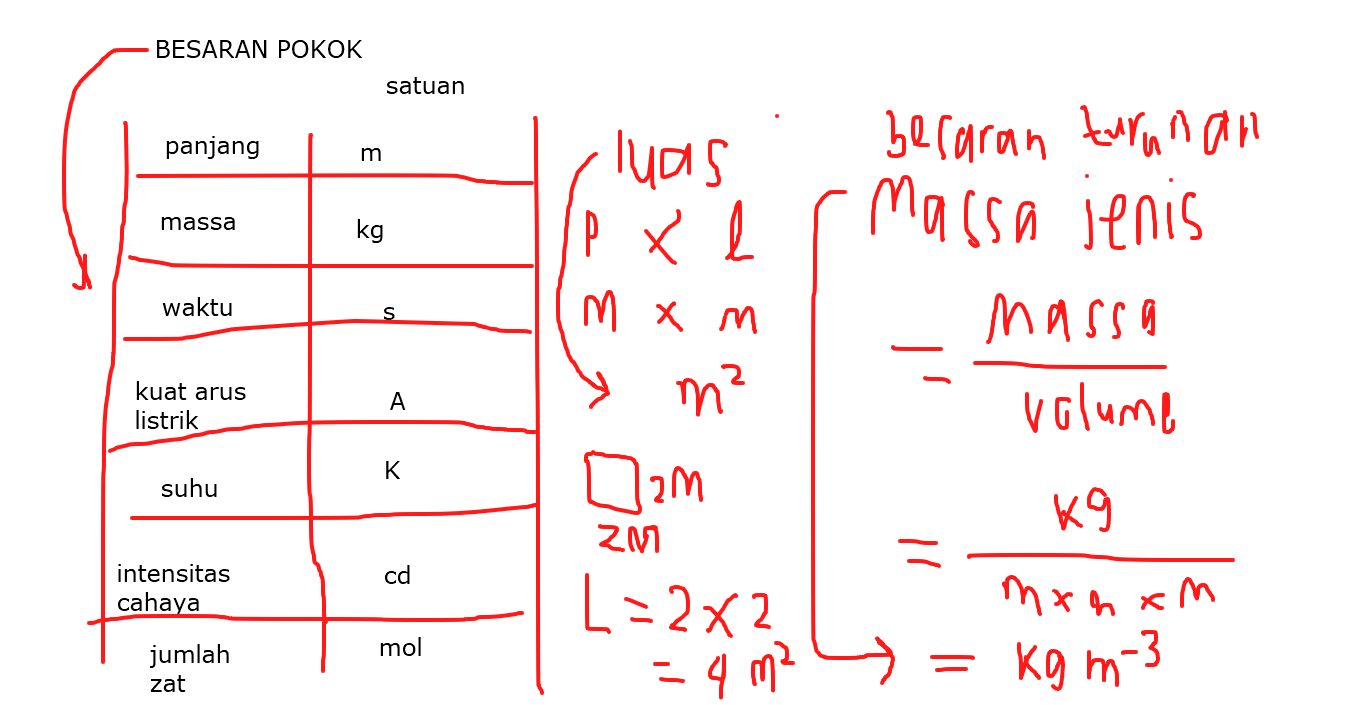 BESARAN POKOK
satuan
panjang m
massa kg
waktu s
kuat arus
listrik A
suhu K
intensitas
cahaya cd
jumlah
zat mol
luas
p x l
m x m
m²
2m
2m
L = 2 x 2
= 4 m²
besaran turunan
Massa jenis
= massa
volume
= kg
m x m x m
= kg m⁻³